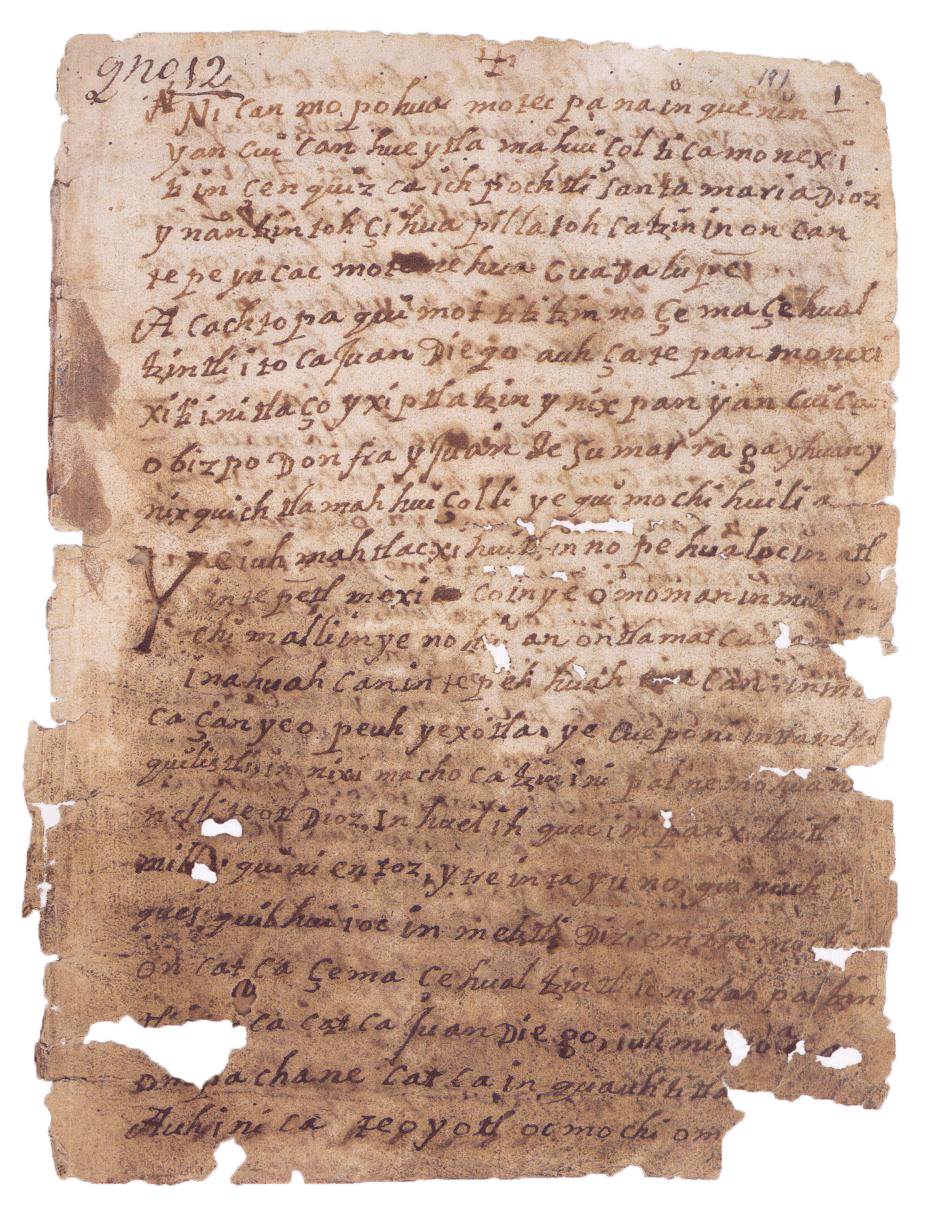 gno 12
✝
191
1
Ni can mo pohua motec pa na in quenin
yan cui can hueytla mahui çol ti ca mo nex i
ti in çen quiz ca ich poch tli santa maria Dioz
y nantzin toh çihua pilla toh catzin in on can
te pe yacac mote nehua Guadalupe
A cachto pa qui mot ti ti tzin no çe ma çe hual
tzintli i to ca Juan Diego auh ça te pan monexi
xiti i ni tlaço yxiptla tzin y nix pan yan cui ca
obizpo Don fra y Juan de sumar ra ga yhuan y
nix quich tla mah hui çolli ye qui mo chi huili a
Ye iuh mahtlac xi huitl in no pe hualoc in atl
in te petl mexi co in ye omoman in mitl in
chi malli in ye no hui an ontlamat ca
I nahuah can in te peh huah can in
ca çan ye o peuh ye xotla ye cue po ni in tlanel
quiliztli in nixi macho ca tzin i ni pal nemo uan
nelli teotl Dioz In huel ih quac i ni pan xi huitl
mill y qui ni en toz, y tre in ta yu no, qui niuh
quez quilhui ioc in metztli Diziembre
on cat ca çe ma çe hual tzintli ic no tlah pal tzin
ca cat ca Juan Diego, iuh
ompa chane cat ca in quauh ti tla
Auh i ni ca teoyotl oc mo chi om